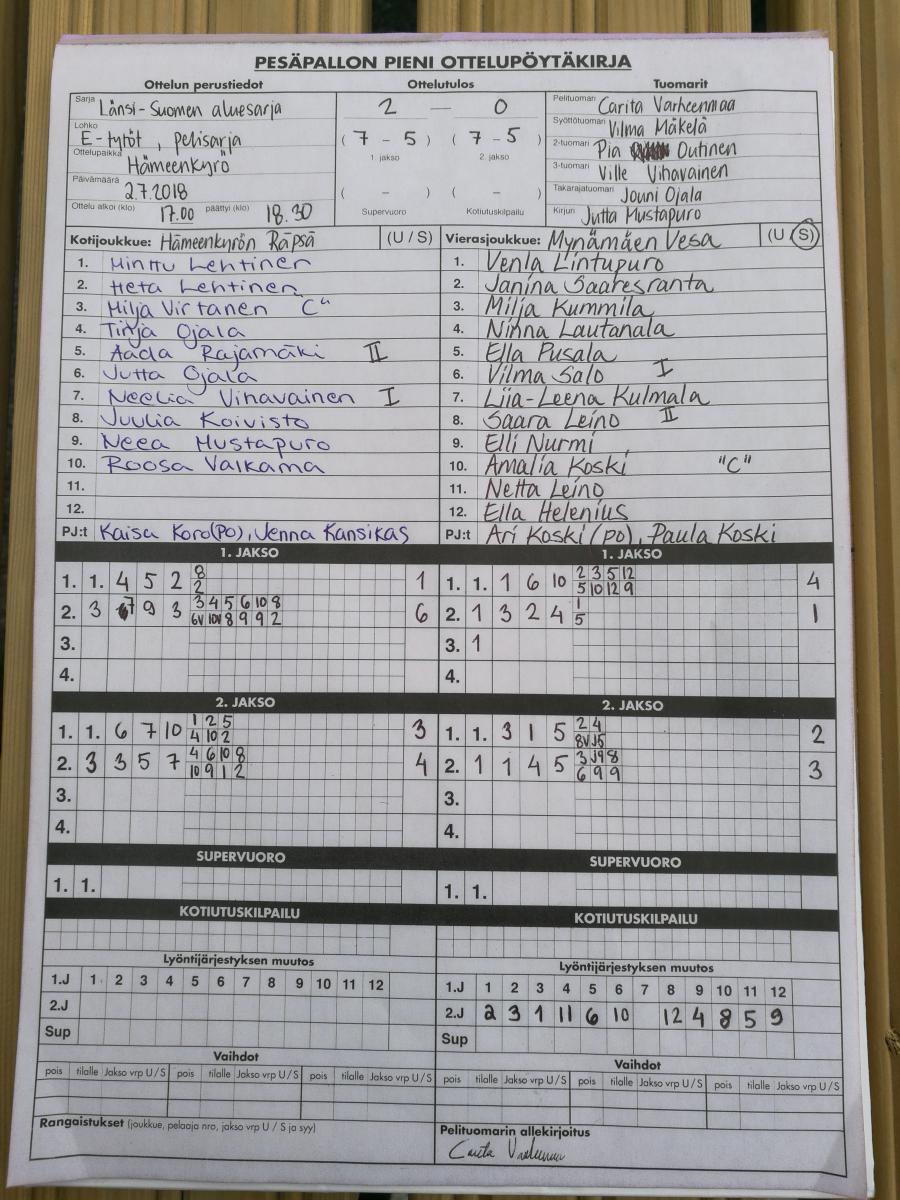 PESÄPALLON PIENI OTTELUPÖYTÄKIRJA
Ottelun perustiedot Ottelutulos Tuomarit
Sarja Länsi-Suomen aluesarja
Lohko E-tytöt, pelisarja
Ottelupaikka Hämeenkyrö
Päivämäärä 2.7.2018
Ottelu alkoi (klo) 17.00 päättyi (klo) 18.30
2 — 0
(7 - 5) (7 - 5)
1. jakso 2. jakso
( - ) ( - )
Supervuoro Kotiutuskilpailu
Pelituomari Carita Varheenmaa
Syöttötuomari Vilma Mäkelä
2-tuomari Pia Outinen
3-tuomari Ville Vihavainen
Takarajatuomari Jouni Ojala
Kirjuri Jutta Mustapuro
Kotijoukkue: Hämeenkyrön Räpsä (U / S)
1. Minttu Lehtinen
2. Heta Lehtinen
3. Milja Virtanen "C"
4. Tinja Ojala
5. Aada Rajamäki II
6. Jutta Ojala
7. Neelia Vihavainen I
8. Juulia Koivisto
9. Neea Mustapuro
10. Roosa Valkama
11.
12.
PJ:t Kaisa Koro(PO), Jenna Kansikas
Vierasjoukkue: Mynämäen Vesa (U / S)
1. Venla Lintupuro
2. Janina Saaresranta
3. Milja Kummila
4. Ninna Lautanala
5. Ella Pusala
6. Vilma Salo I
7. Liia-Leena Kulmala
8. Saara Leino II
9. Elli Nurmi
10. Amalia Koski "C"
11. Netta Leino
12. Ella Helenius
PJ:t Ari Koski (po), Paula Koski
1. JAKSO
1. 1. 4 5 2 8 1
2
2. 3 7 9 3 3 4 5 6 10 8 6
6V 10V 8 9 9 2
3.
4.
1. JAKSO
1. 1. 1 6 10 2 3 5 12 4
5 10 12 9
2. 1 3 2 4 1 1
5
3. 1
4.
2. JAKSO
1. 1. 6 7 10 1 2 5 3
4 10 2
2. 3 3 5 7 4 6 10 8 4
10 9 1 2
3.
4.
2. JAKSO
1. 1. 3 1 5 2 4 2
8V J5
2. 1 1 4 5 3 J9 8 3
6 9 9
3.
4.
SUPERVUORO
1. 1.
SUPERVUORO
1. 1.
KOTIUTUSKILPAILU
KOTIUTUSKILPAILU
Lyöntijärjestyksen muutos
1.J 1 2 3 4 5 6 7 8 9 10 11 12
2.J
Sup
Lyöntijärjestyksen muutos
1.J 1 2 3 4 5 6 7 8 9 10 11 12
2.J 2 3 1 11 6 10 12 4 8 5 9
Sup
Vaihdot
pois tilalle Jakso vrp U / S pois tilalle Jakso vrp U / S pois tilalle Jakso vrp U / S
Vaihdot
pois tilalle Jakso vrp U / S pois tilalle Jakso vrp U / S pois tilalle Jakso vrp U / S
Rangaistukset (joukkue, pelaaja nro, jakso vrp U / S ja syy)
Pelituomarin allekirjoitus